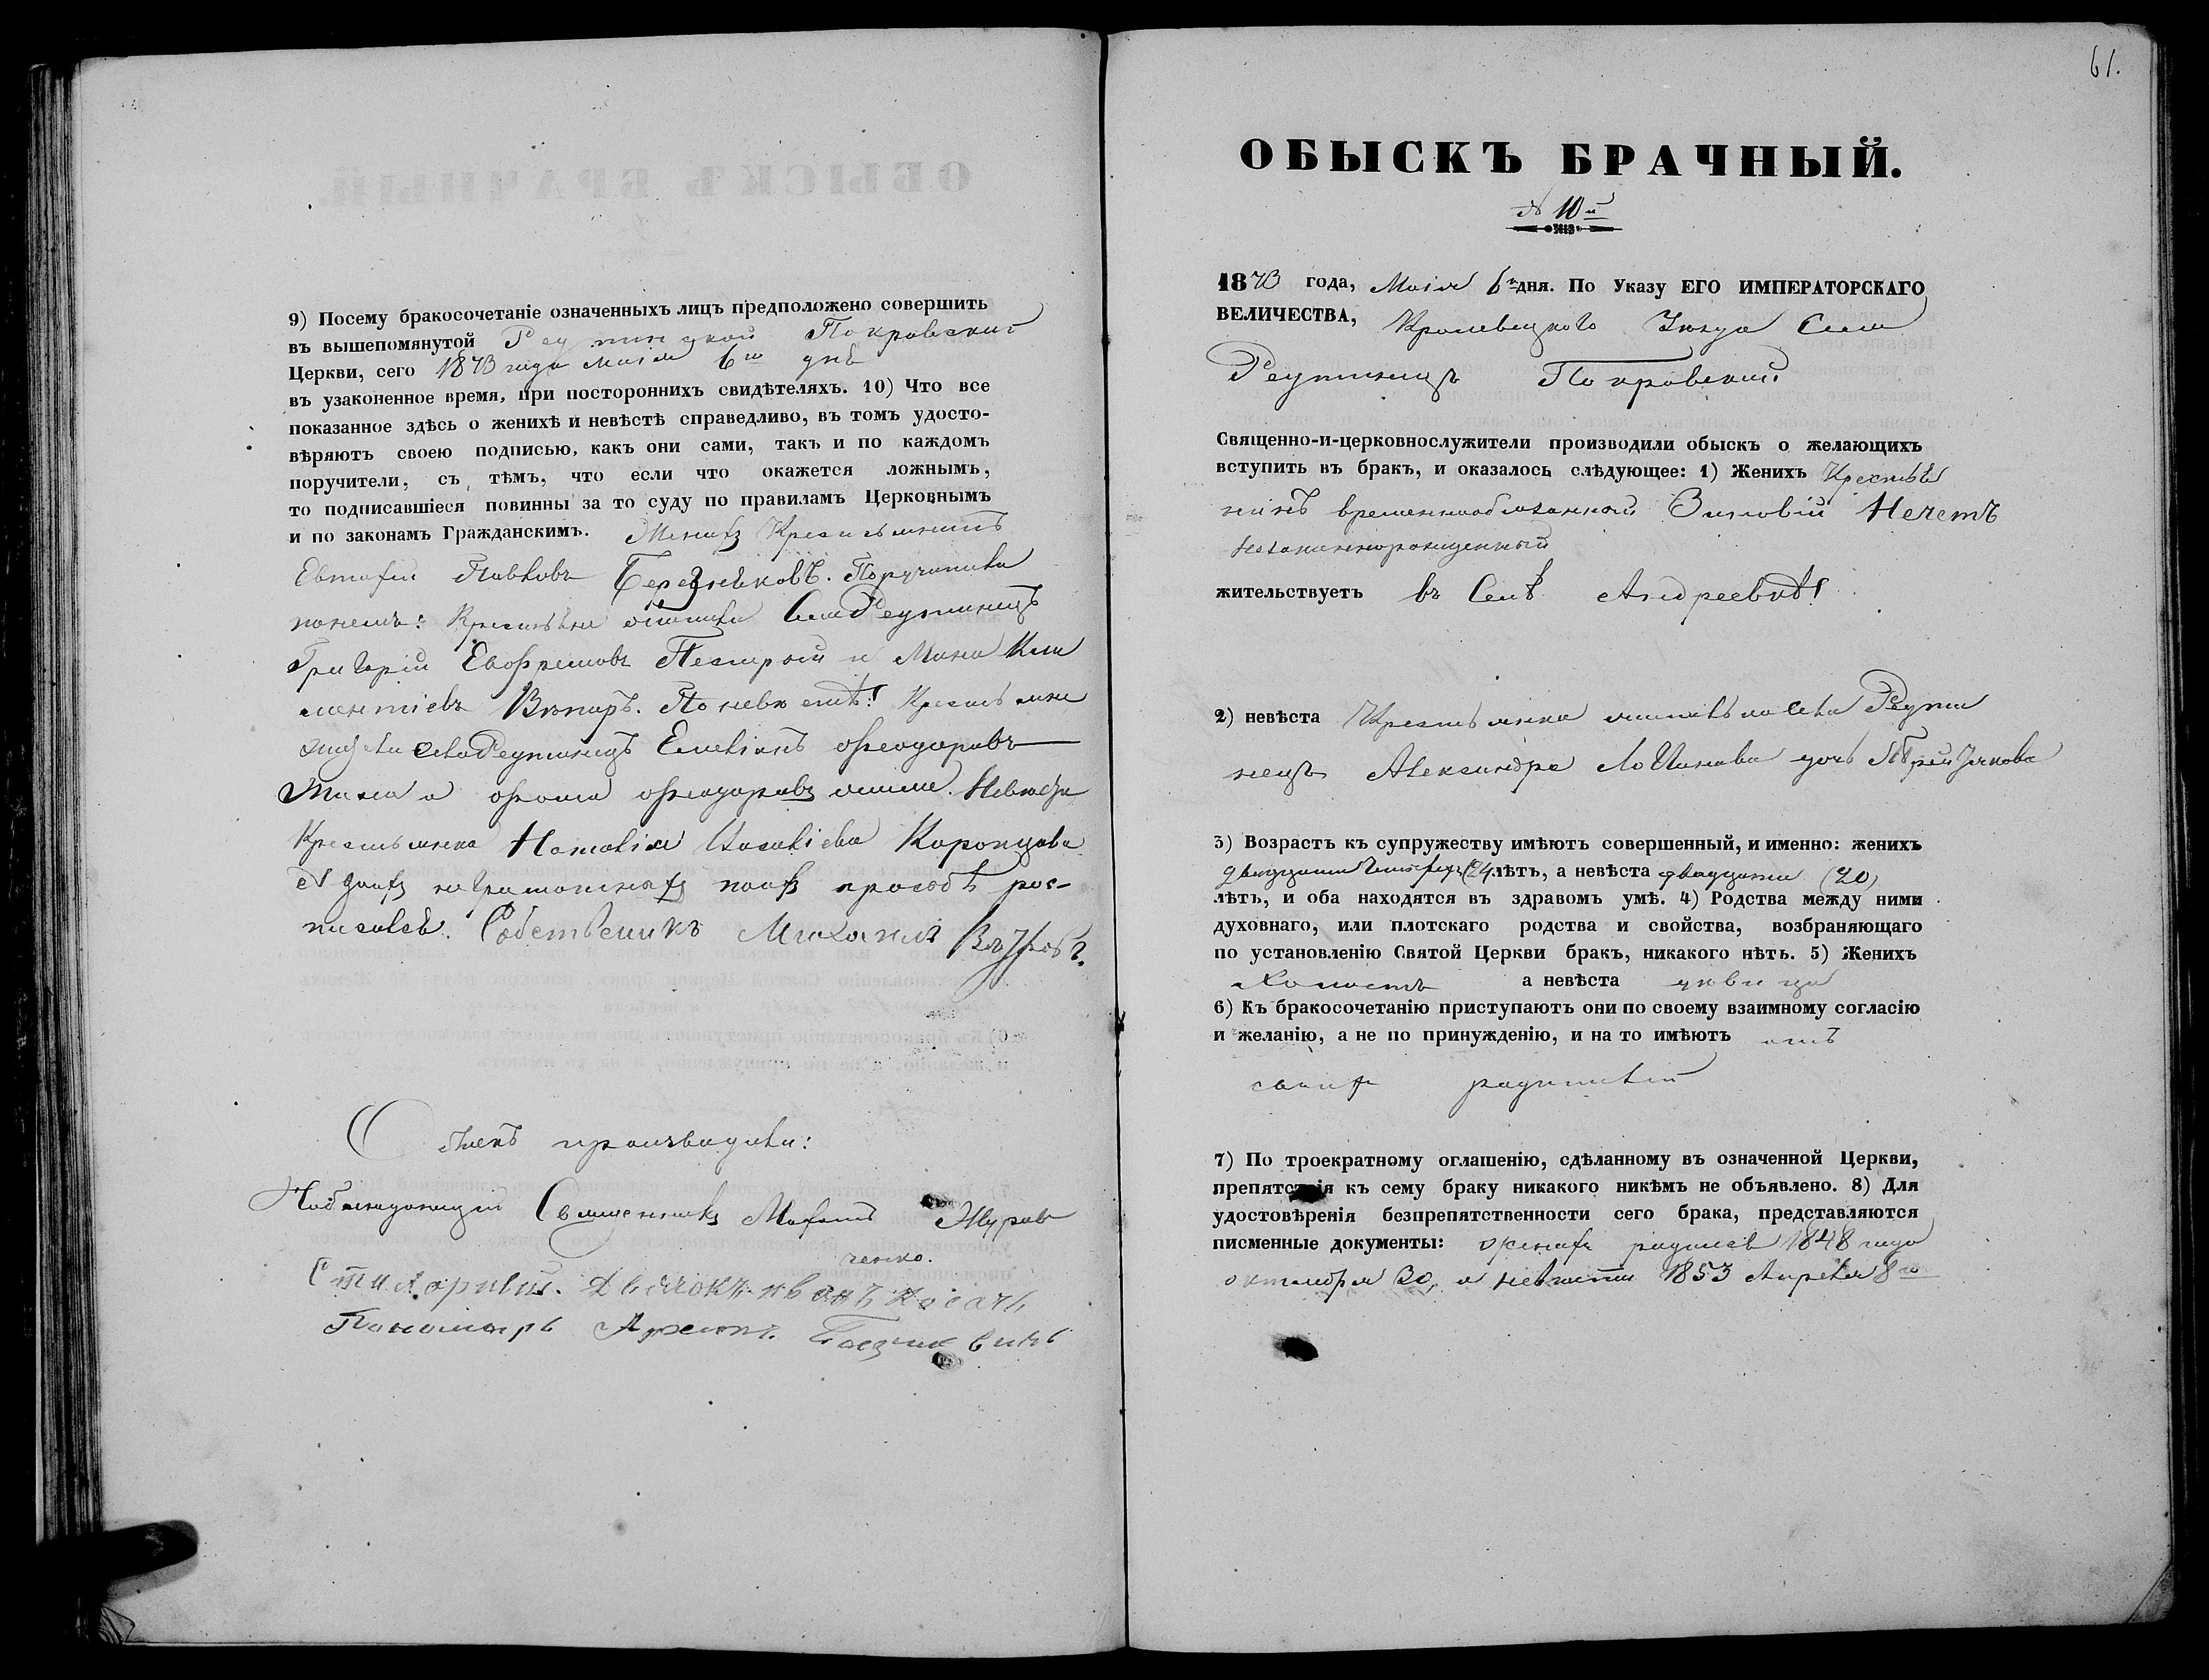 9) Посему бракосочетаніе означенныхъ лицъ предположено совершить
въ вышепомянутой Реутинской Покровской
Церкви, сего 1873 года Маія 6го дня
въ узаконенное время, при постороннихъ свидѣтеляхъ. 10) Что все
показанное здѣсь о женихѣ и невѣстѣ справедливо, въ томъ удосто-
вѣряютъ своею подписью, какъ они сами, такъ и по каждомъ
поручители, съ тѣмъ, что если что окажется ложнымъ,
то подписавшіеся повинны за то суду по правиламъ Церковнымъ
и по законамъ Гражданскимъ. Женихъ Крестьянинъ
Евтафій Павловъ Березняковъ. Поручители
по немъ: Крестьяне Села Реутинецъ
Григорій Евфремовъ Пестрый и Мина Кли
ментіевъ Вепиръ. По невестѣ: Крестьяне
Села Реутинецъ Емеліанъ Феодоровъ
и Фома Феодоровъ Невеста
Крестьянка Наталія Коропцова
А за ихъ неграмотныхъ по ихъ прозбѣ рос-
писался. Собственикъ Михаилъ
Обыскъ производили:
Наблюдающій Священникъ Журав
ченко.
Стихарный. Дьячокъ Иванъ Косачъ
Пономарь
61.
ОБЫСКЪ БРАЧНЫЙ.
№ 10й
1873 года, Маія 6го дня. По Указу ЕГО ИМПЕРАТОРСКАГО
ВЕЛИЧЕСТВА, Кролевецкого Уезда Села
Реутинецъ Покровской
Священно-и-церковнослужители производили обыскъ о желающихъ
вступить въ бракъ, и оказалось слѣдующее: 1) Женихъ Крестья
нинъ временнообязанной Зиновій Нечетъ
незаконнорожденный
жительствуетъ въ Селѣ Андреевкѣ!
2) невѣста Крестьянка Села Реути
нецъ Александра Логинова дочь
3) Возрастъ къ супружеству имѣютъ совершенный, и именно: женихъ
двадцати четырехъ (24) лѣтъ, а невѣста двадцати (20)
лѣтъ, и оба находятся въ здравомъ умѣ. 4) Родства между ними
духовнаго, или плотскаго родства и свойства, возбраняющаго
по установленію Святой Церкви бракъ, никакого нѣтъ. 5) Женихъ
Холостъ а невѣста девица
6) Къ бракосочетанію приступаютъ они по своему взаимному согласію
и желанію, а не по принужденію, и на то имѣютъ отъ
своихъ родителей
7) По троекратному оглашенію, сдѣланному въ означенной Церкви,
препятствія къ сему браку никакого никѣмъ не объявлено. 8) Для
удостовѣренія безпрепятственности сего брака, представляются
писменные документы: Женихъ родился 1848 года
октября 30, а невеста 1853 Апреля 8го